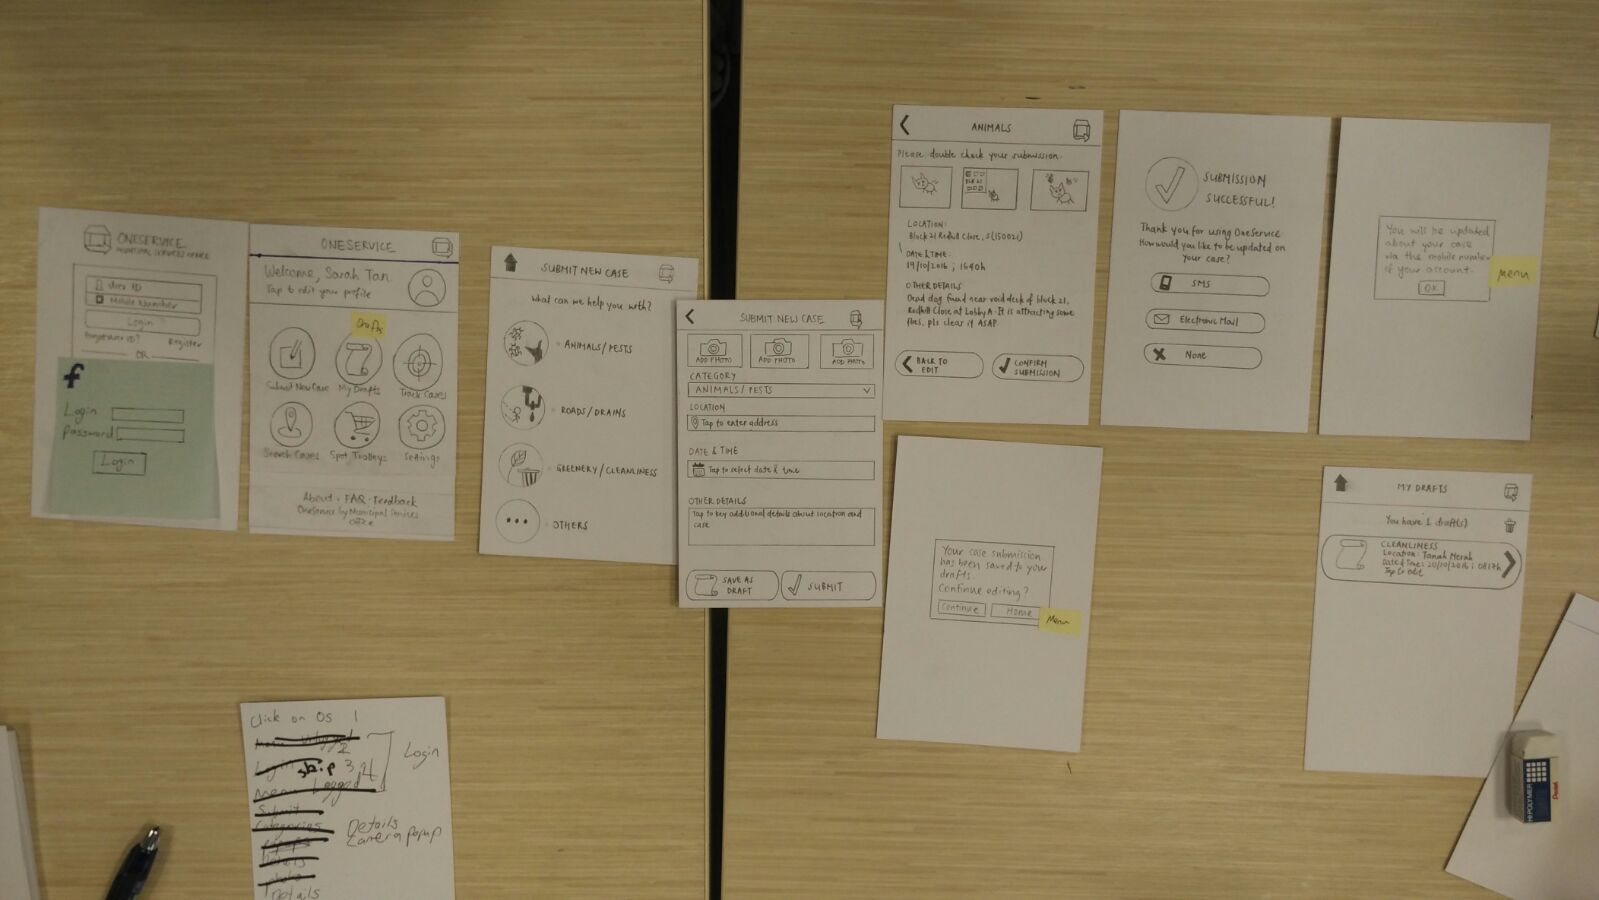 ONESERVICE
MUNICIPAL SERVICES OFFICE
User ID
Mobile Number
Login
Forgotten ID?
Register
OR
f
Login
Password
Login
ONESERVICE
Welcome, Sarah Tan
Tap to edit your profile
Drafts
Submit New Case
My Drafts
Track Cases
Search Cases
Spot Trolleys
Settings
About · FAQ · Feedback
OneService by Municipal Services
Office
SUBMIT NEW CASE
What can we help you with?
ANIMALS/PESTS
ROADS/DRAINS
GREENERY/CLEANLINESS
OTHERS
SUBMIT NEW CASE
ADD PHOTO
ADD PHOTO
ADD PHOTO
CATEGORY
ANIMALS/PESTS
LOCATION
Tap to enter address
DATE & TIME
Tap to select date & time
OTHER DETAILS
Tap to key additional details about location and
case
SAVE AS
DRAFT
SUBMIT
ANIMALS
Please double check your submission.
BLK 21
LOCATION:
Block 21 Redhill Close, S(150021)
DATE & TIME:
19/10/2016 ; 1640h
OTHER DETAILS
Dead dog found near void deck of block 21,
Redhill Close at Lobby A. It is attracting some
flies, pls clear it ASAP.
BACK TO
EDIT
CONFIRM
SUBMISSION
SUBMISSION
SUCCESSFUL!
Thank you for using OneService
How would you like to be updated on
your case?
SMS
Electronic Mail
None
You will be updated
about your case
via the mobile number
of your account.
OK
Menu
Your case submission
has been saved to your
drafts.
Continue editing?
Continue
Home
Menu
MY DRAFTS
You have 1 draft(s)
CLEANLINESS
Location: Tanah Merah
Date & Time: 20/10/2016 ; 0817h
Tap to edit
Click on OS 1
2
Login
skip 3,4
Login
Menu Logged
Submit
Categories
Details
Camera popup
Details
photo
Details
HI-POLYMER
Pentel